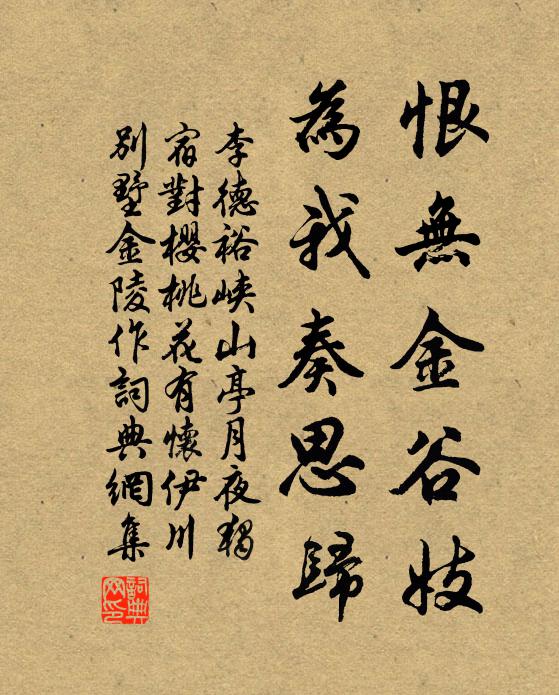 恨無金谷妓
為我奏思歸
李德裕峽山亭月夜獨
宿對櫻桃花有懷伊川
別墅金陵作詞典網集
詞典網印